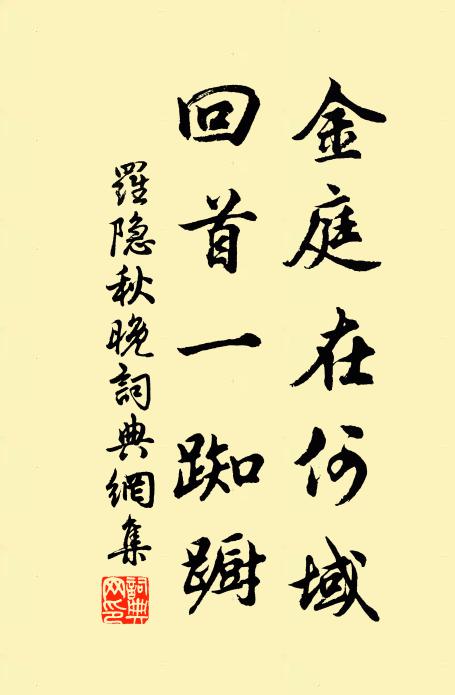 金庭在何域
回首一踟蹰
羅隐秋晚詞典網集
詞典
网印